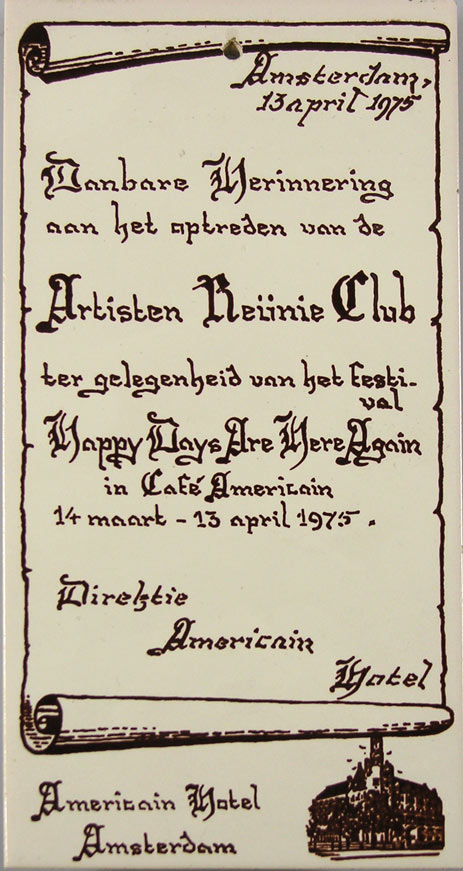 Amsterdam,
13 april 1975
Danbare Herinnering
aan het optreden van de
Artisten Reünie Club
ter gelegenheid van het festi-
val
Happy Days Are Here Again
in Café Americain
14 maart - 13 april 1975.
Direktie
Americain
Hotel
Americain Hotel
Amsterdam